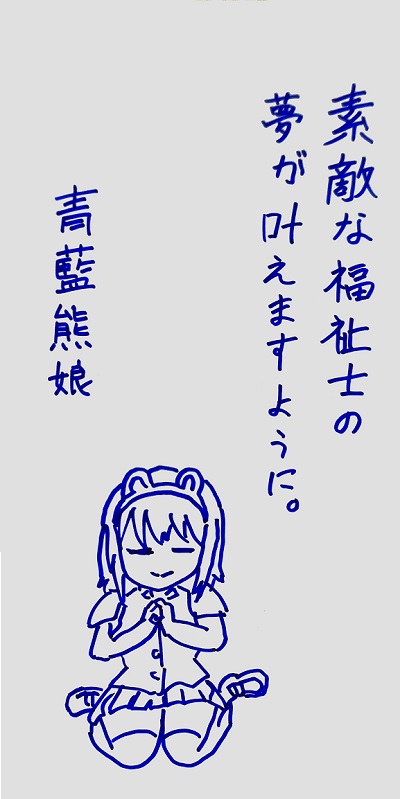 素敵な福祉士の
夢が叶えますように。
青藍熊娘